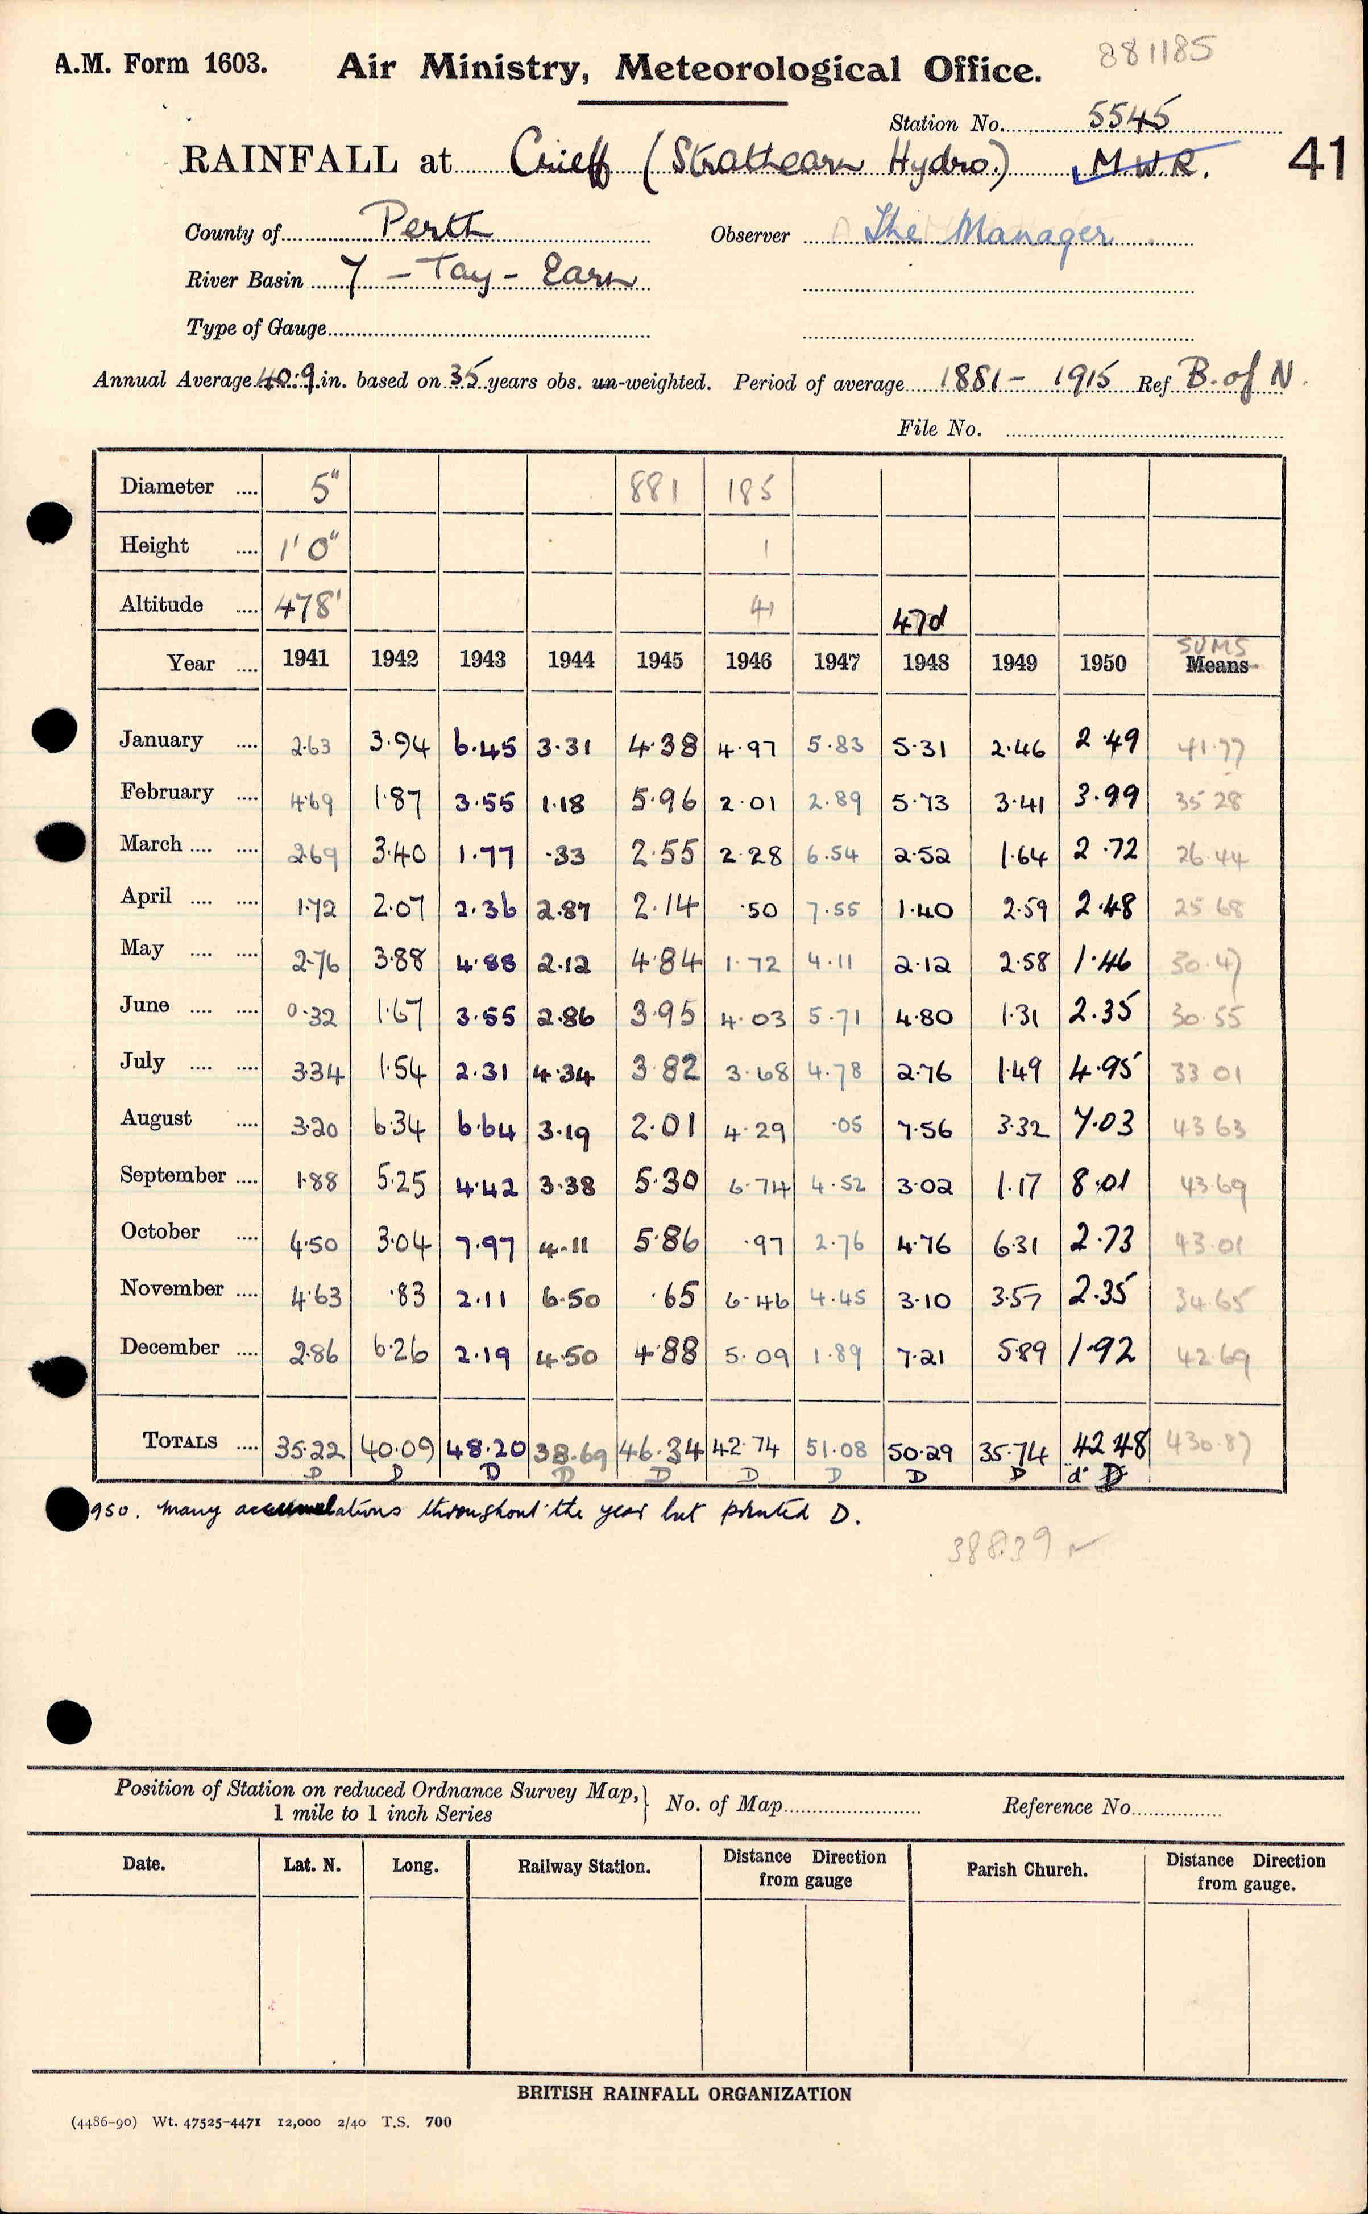 881185
A.M. Form 1603. Air Ministry, Meteorological Office.
Station No. 5545
RAINFALL at Crieff (Strathearn Hydro.) M.W.R. 41
County of Perth Observer The Manager
River Basin 7 - Tay - Earn
Type of Gauge
Annual Average 40.9 in. based on 35 years obs. un-weighted. Period of average 1881 - 1915 Ref B. of N.
File No.
Diameter .... 5" 881 185
Height .... 1' 0" 1
Altitude .... 478' 41 47d
SUMS
Year .... 1941 1942 1943 1944 1945 1946 1947 1948 1949 1950 Means
January .... 2.63 3.94 6.45 3.31 4.38 4.97 5.83 5.31 2.46 2.49 41.77
February .... 4.69 1.87 3.55 1.18 5.96 2.01 2.89 5.73 3.41 3.99 35 28
March .... .... 2.69 3.40 1.77 .33 2.55 2.28 6.54 2.52 1.64 2.72 26.44
April .... .... 1.72 2.07 2.36 2.87 2.14 .50 7.55 1.40 2.59 2.48 25 68
May .... .... 2.76 3.88 4.88 2.12 4.84 1.72 4.11 2.12 2.58 1.46 30.47
June .... .... 0.32 1.67 3.55 2.86 3.95 4.03 5.71 4.80 1.31 2.35 30.55
July .... .... 3.34 1.54 2.31 4.34 3.82 3.68 4.78 2.76 1.49 4.95 33 01
August .... 3.20 6.34 6.64 3.19 2.01 4.29 .05 7.56 3.32 7.03 43 63
September .... 1.88 5.25 4.42 3.38 5.30 6.74 4.52 3.02 1.17 8.01 43.69
October .... 4.50 3.04 7.97 4.11 5.86 .97 2.76 4.76 6.31 2.73 43.01
November .... 4.63 .83 2.11 6.50 .65 6.46 4.45 3.10 3.57 2.35 34.65
December .... 2.86 6.26 2.19 4.50 4.88 5.09 1.89 7.21 5.89 1.92 42.69
TOTALS .... 35.22 40.09 48.20 38.69 46.34 42.74 51.08 50.29 35.74 42 48 430.87
D D D D D D D D D d D
950. Many accumulations throughout the year but printed D.
388.39 ✓
Position of Station on reduced Ordnance Survey Map,} No. of Map Reference No.
1 mile to 1 inch Series
Date. Lat. N. Long. Railway Station. Distance Direction from gauge Parish Church. Distance Direction from gauge.
BRITISH RAINFALL ORGANIZATION
(4486-90) Wt. 47525-4471 12,000 2/40 T.S. 700